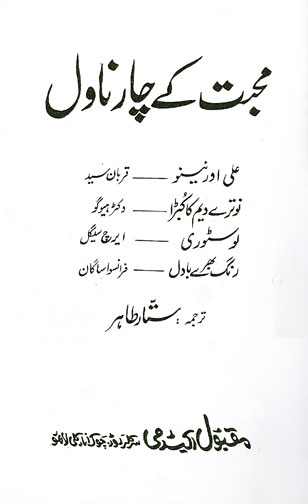 محبت کے چار ناول
علی اور نینو — قربان سید
نوترے دیم کا کبڑا — وکٹر ہیوگو
لو سٹوری — ایرچ سیگل
رنگ بھرے بادل — فرانسوا ساگان
ترجمہ : ستّار طاہر
مقبول اکیڈمی سرکلر روڈ چوک انارکلی لاہور